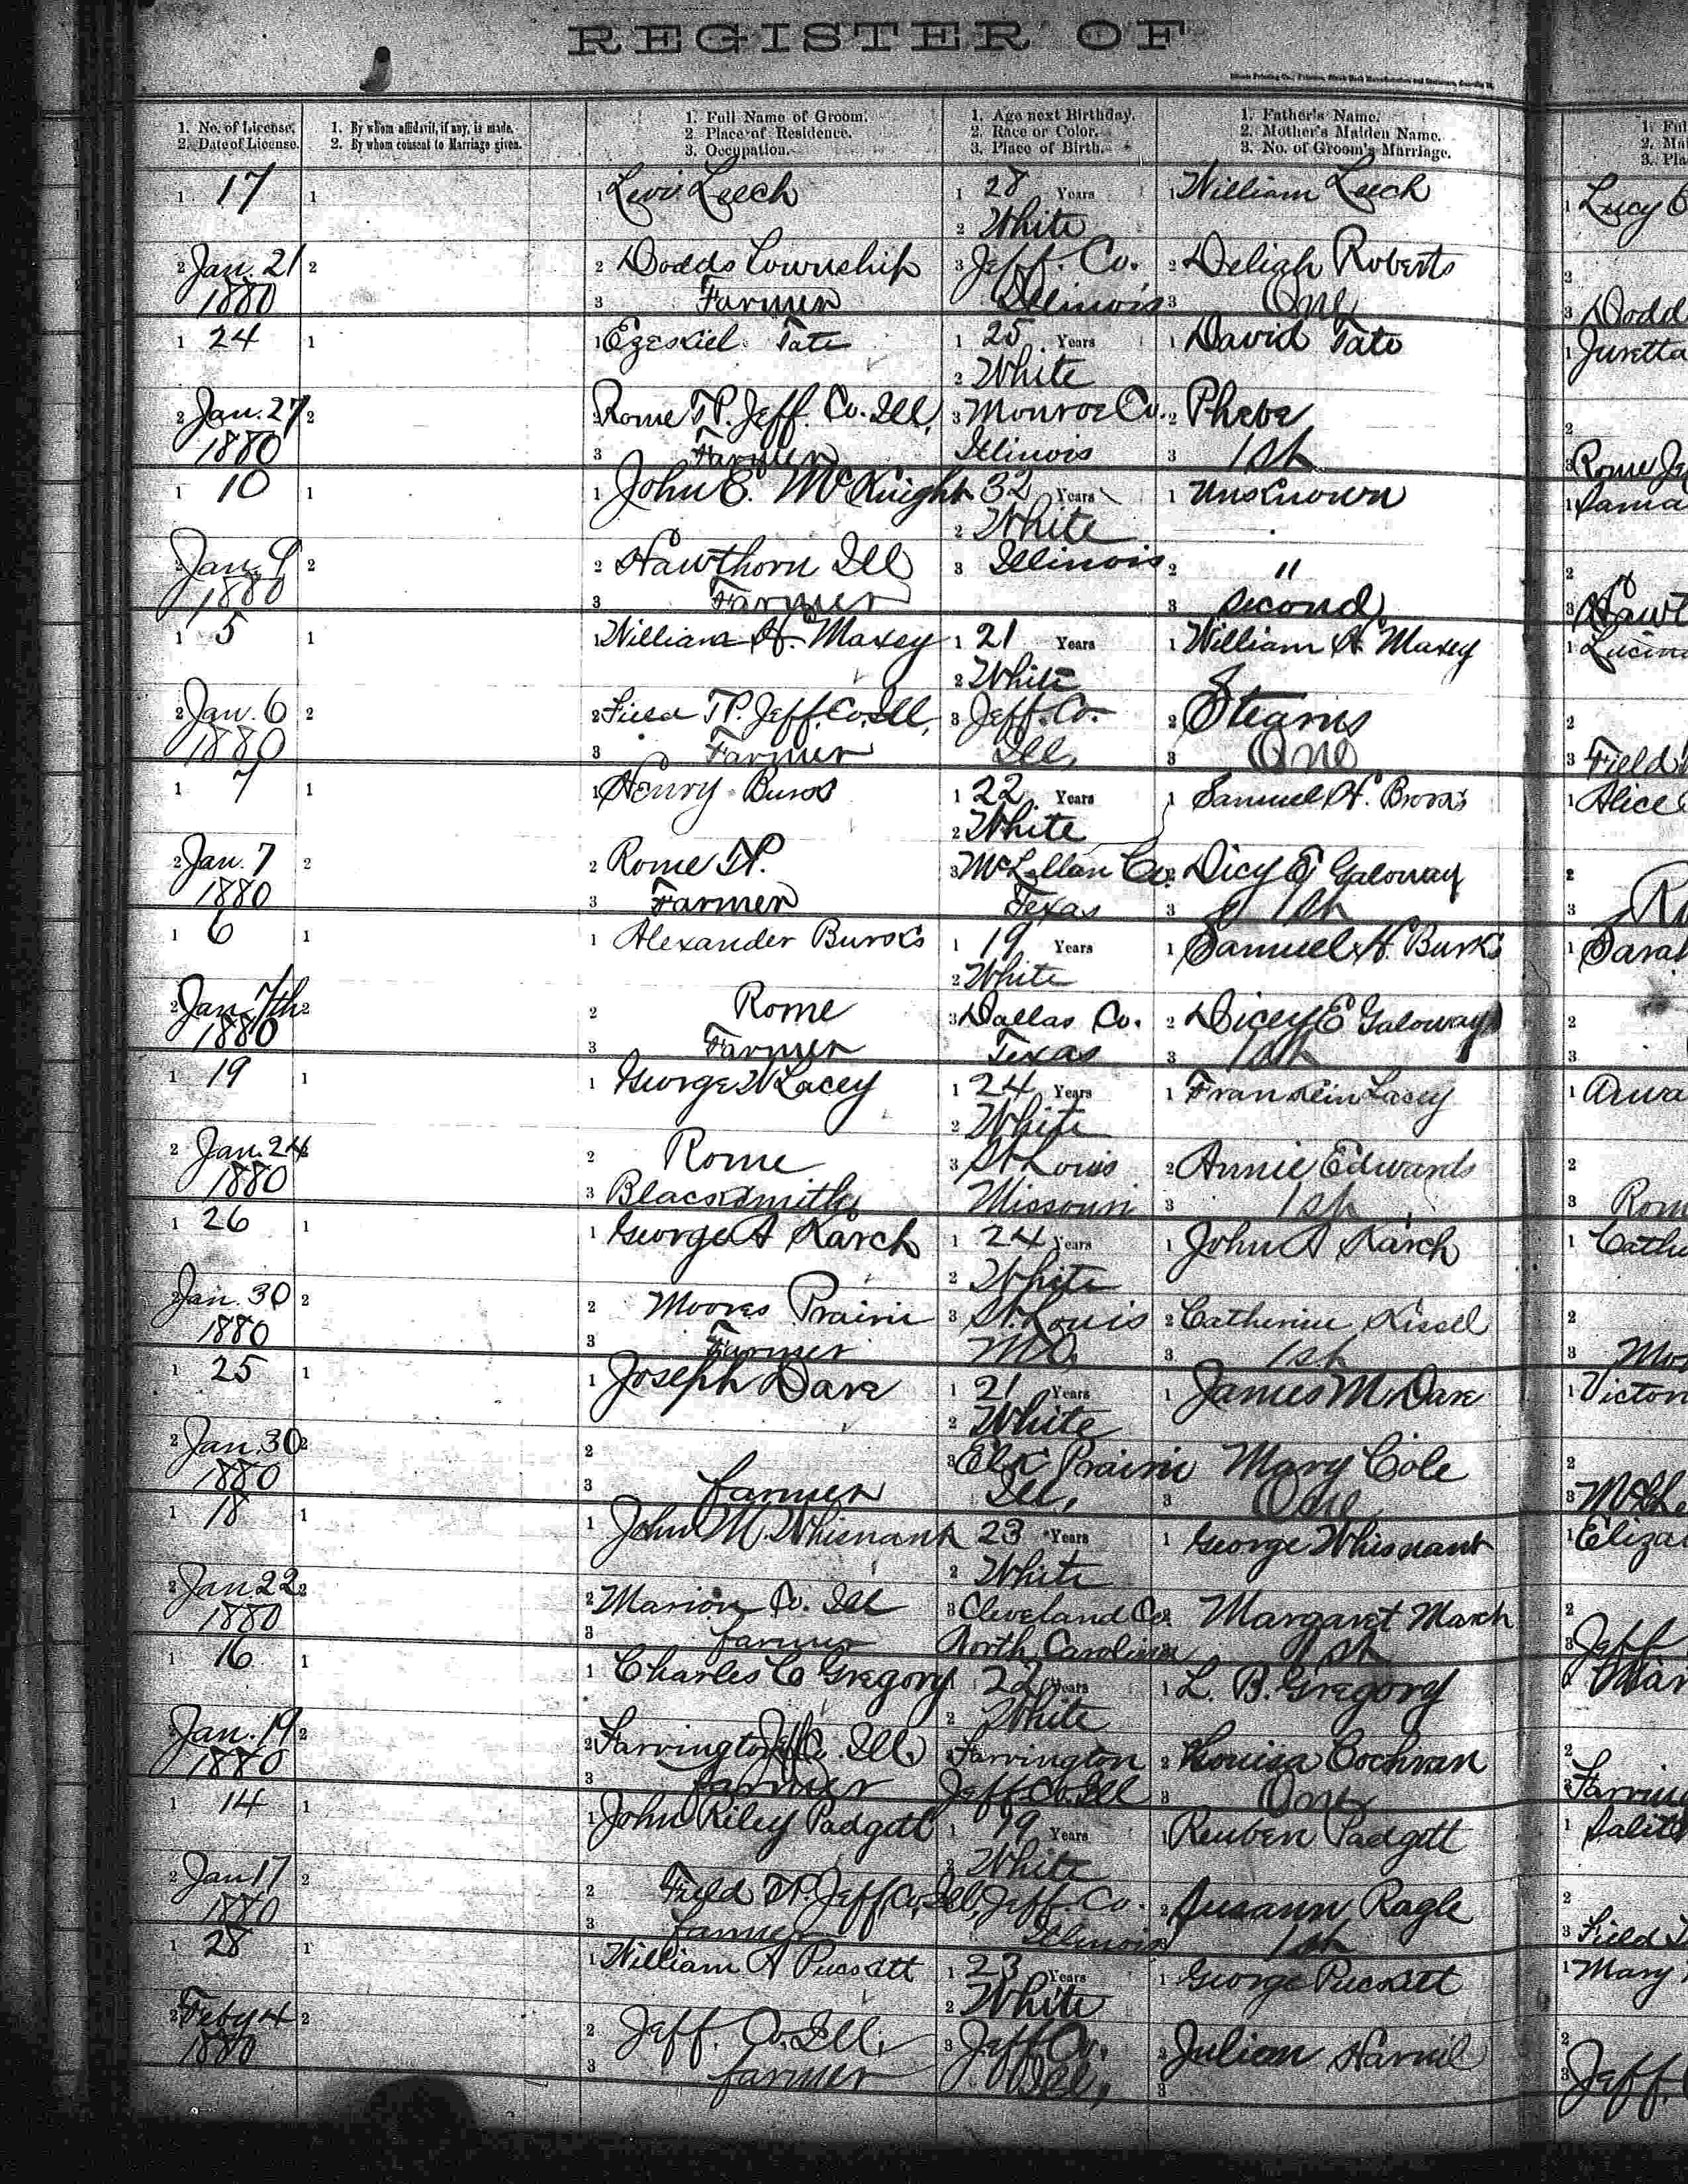 REGISTER OF
1. No. of License.
2. Date of License.
1. By whom affidavit, if any, is made.
2. By whom consent to Marriage given.
1. Full Name of Groom.
2. Place of Residence.
3. Occupation.
1. Age next Birthday.
2. Race or Color.
3. Place of Birth.
1. Father's Name.
2. Mother's Maiden Name.
3. No. of Groom's Marriage.
1 17 1 1 Levi Leech 1 28 Years 1 William Leech 1 Lucy
2 White
2 Jan. 21 2 2 Dodds Township 3 Jeff. Co. 2 Deliah Roberts 2
1880 3 Farmer Illinois 3 One 3 Dodd
1 24 1 1 Ezekiel Tate 1 25 Years 1 David Tate 1 Juretta
2 White
2 Jan. 27 2 2 Rome TP. Jeff. Co. Ill. 3 Monroe Co. 2 Phebe 2
1880 3 Farmer Illinois 3 1st 3 Rome Je
1 10 1 1 John E. McKnight 32 Years 1 Unknown 1
2 White
2 Jan. 9 2 2 Hawthorn Ill 3 Illinois 2 " 2
1880 3 Farmer 3 second 3 Hawt
1 5 1 1 William H. Maxey 1 21 Years 1 William H. Maxey 1 Lucin
2 White
2 Jan. 6 2 2 Field TP. Jeff. Co. Ill. 3 Jeff. Co. 2 Stearns 2
1880 3 Farmer Ill. 3 One 3 Field
1 7 1 1 Henry Burks 1 22 Years 1 Samuel H. 1 Alice
2 White
2 Jan. 7 2 2 Rome TP. 3 McLellan Co. 2 Dicy E Galoway 2
1880 3 Farmer Texas 3 1st 3
1 6 1 1 Alexander Burks 1 19 Years 1 Samuel H. Burks 1 Sarah
2 White
2 Jan. 7th 2 2 Rome 3 Dallas Co. 2 Dicey E Galoway 2
1880 3 Farmer Texas 3 1st 3
1 19 1 1 George W Lacey 1 24 Years 1 Franklin Lacey 1
2 White
2 Jan. 24 2 Rome 3 St Louis 2 Annie Edwards 2
1880 3 Blacksmith Missouri 3 1st 3 Rom
1 26 1 1 George A Karch 1 24 Years 1 John A Karch 1 Cathe
2 White
2 Jan. 30 2 2 Moores Prairie 3 St. Louis 2 Catherine Kissel 2
1880 3 Farmer MO. 3 1st 3 Moo
1 25 1 1 Joseph Dare 1 21 Years 1 James M Dare 1 Victor
2 White
2 Jan. 30 2 2 3 Elk Prairie Mary Cole 2
1880 3 farmer Ill. 3 One 3
1 18 1 1 John M. Whisnant 23 Years 1 George Whisnant 1 Eliza
2 White
2 Jan 22 2 2 Marion Co. Ill 3 Cleveland Co. Margaret March 2
1880 3 farmer North Carolina 1st 3 Jeff
1 16 1 1 Charles C Gregory 22 Years 1 L. B. Gregory 1 Mar
2 White
2 Jan. 19 2 2 Farrington Jeff Co. Ill. Farrington 2 Louisa Cochran 2
1880 3 farmer Jeff Co. Ill 3 One 3 Farring
1 14 1 1 John Riley Padgett 1 19 Years 1 Reuben Padgett 1
2 White
2 Jan 17 2 2 Field TP. Jeff. Co. Ill. Jeff. Co. 2 Susann Ragle 2
1880 3 farmer Illinois 1st 3 Field
1 28 1 1 William A Puckett 1 23 Years 1 George Puckett 1 Mary
2 White
2 Feby 4 2 2 Jeff. Co. Ill. 3 Jeff Co. 2 Julian Harvil 2
1880 3 farmer Ill. 3 3 Jeff.